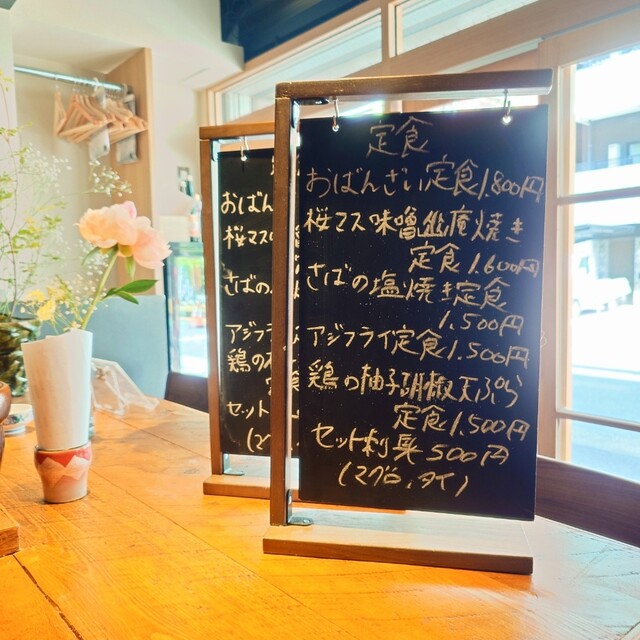 定食
おばんざい定食1.800円
桜マス味噌幽庵焼き
定食1.600円
さばの塩焼き定食
1.500円
アジフライ定食1.500円
鶏の柚子胡椒天ぷら
定食1.500円
セット刺身500円
(マグロ、タイ)
おばん
桜マス
さばの
アジフラ
鶏の
セット